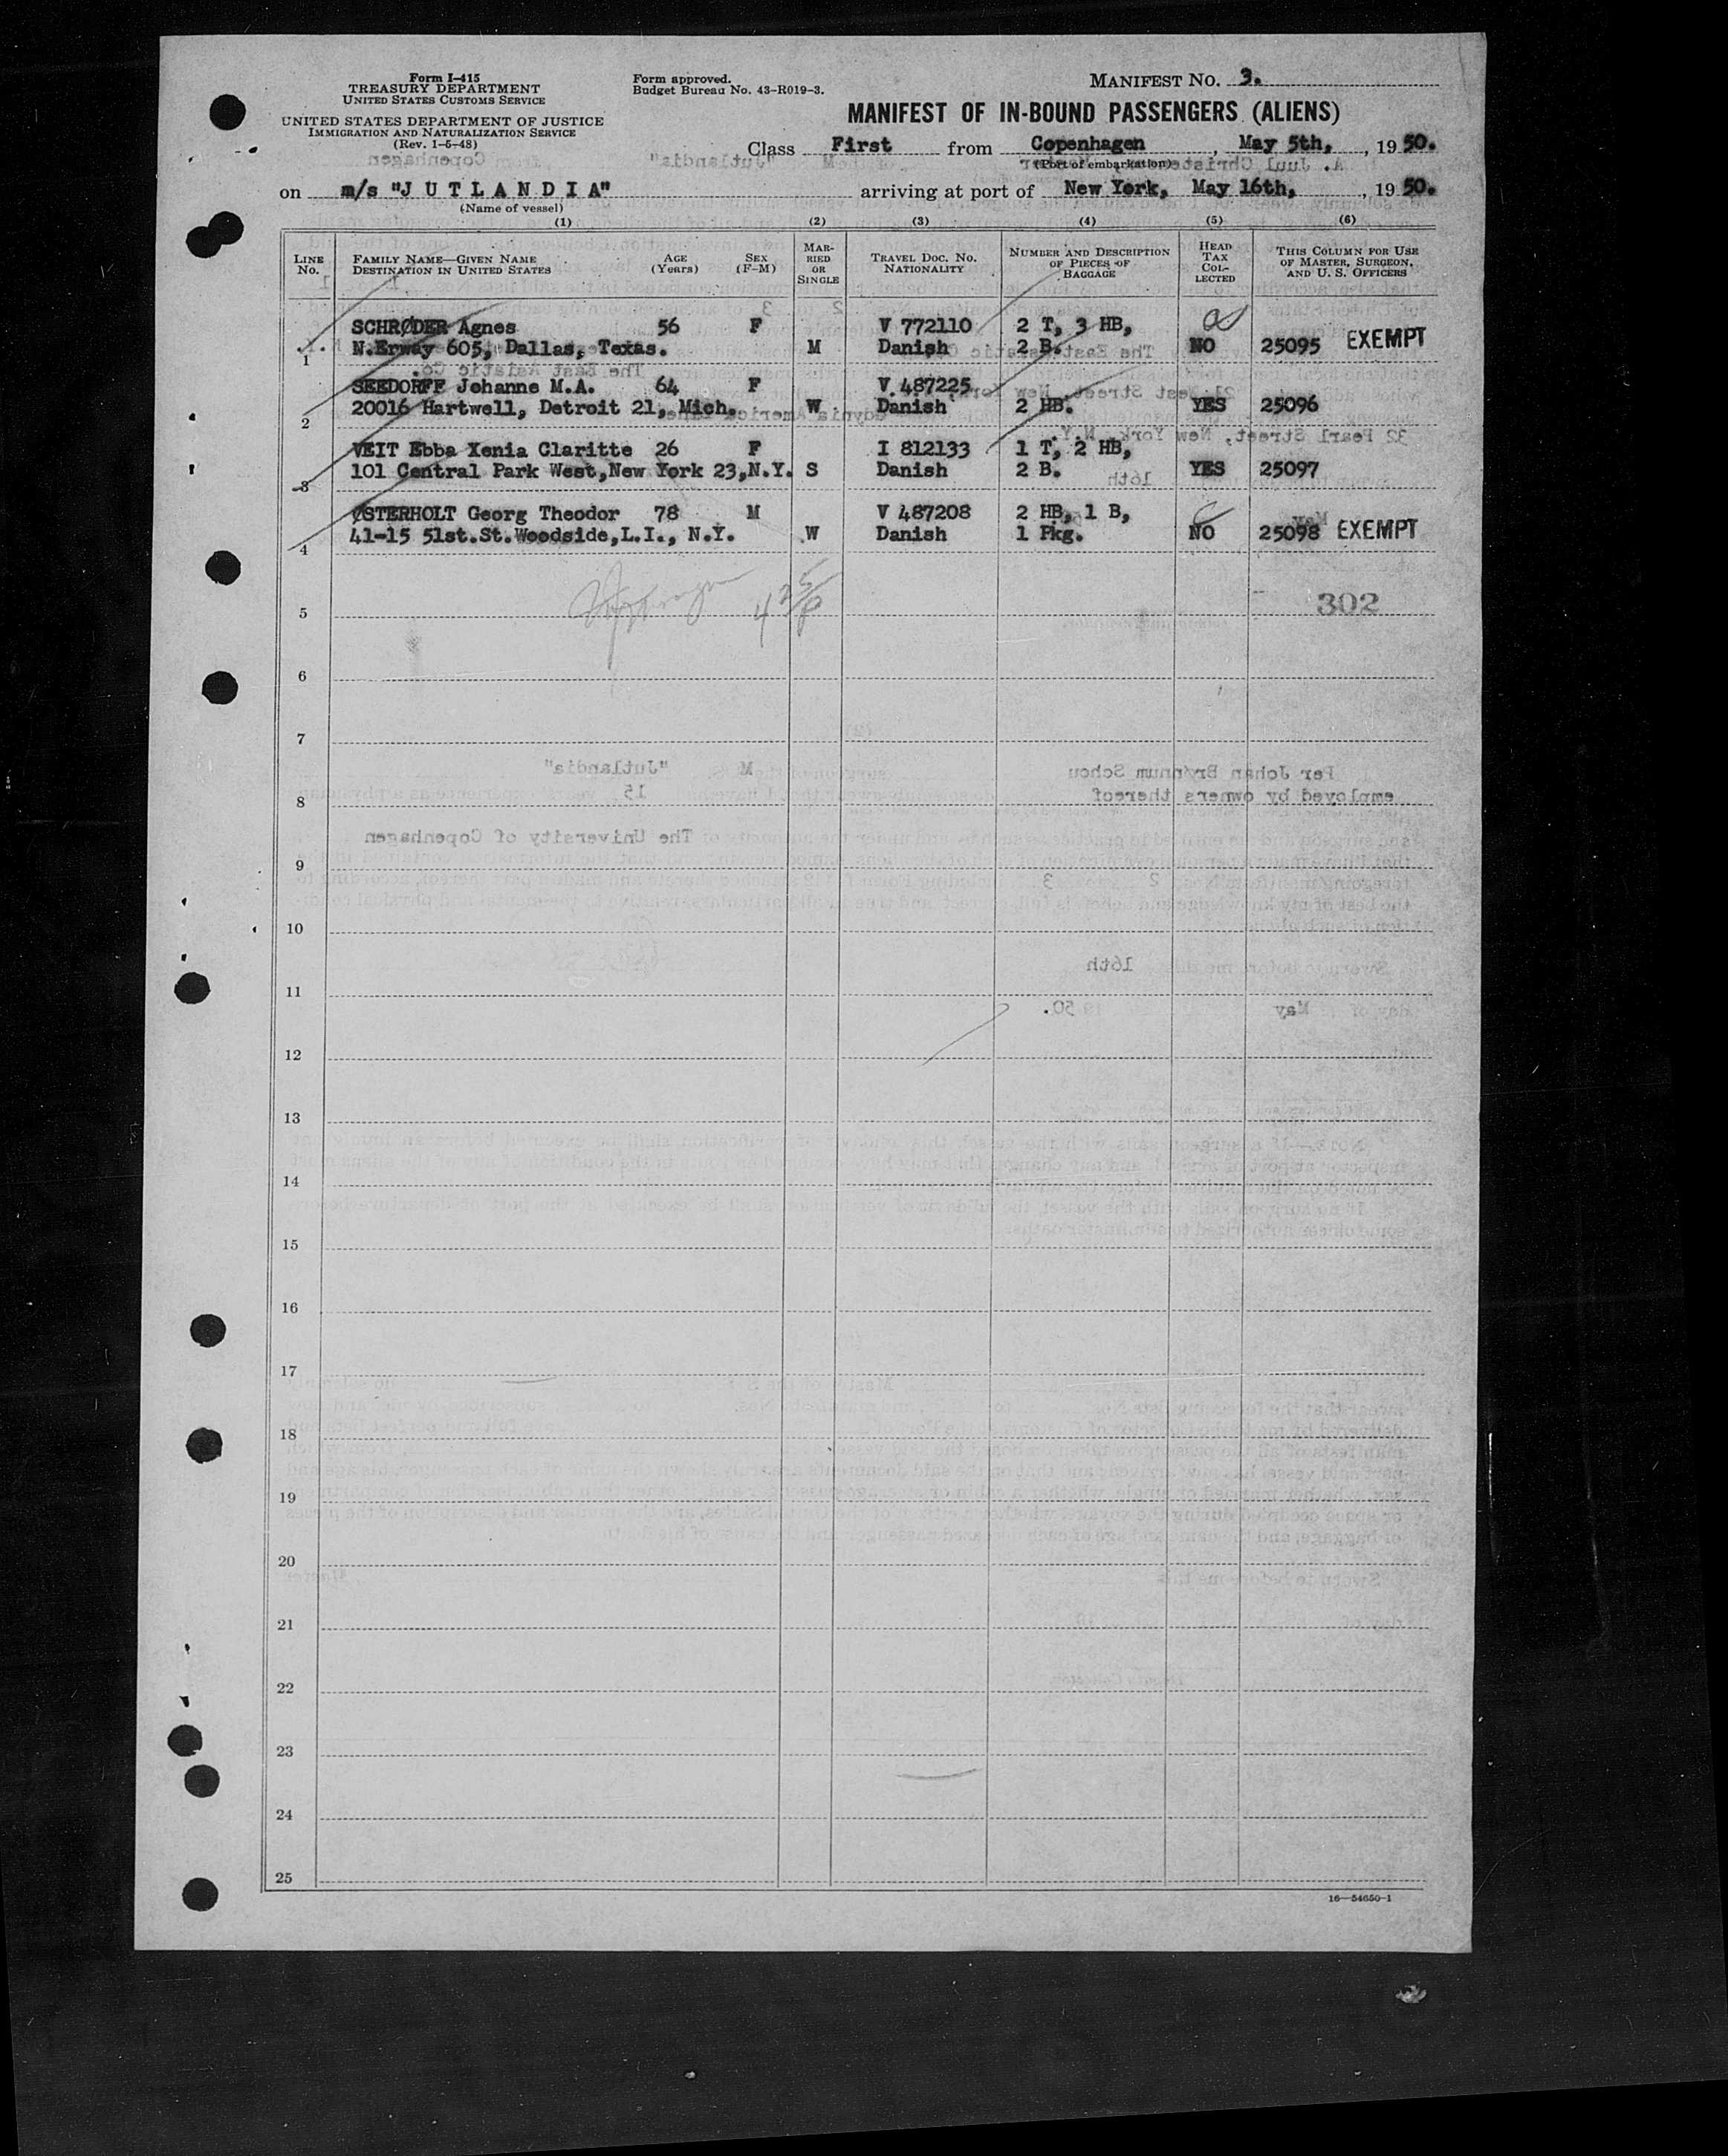 Form I-415
TREASURY DEPARTMENT
UNITED STATES CUSTOMS SERVICE
UNITED STATES DEPARTMENT OF JUSTICE
IMMIGRATION AND NATURALIZATION SERVICE
(Rev. 1-5-48)
Form approved.
Budget Bureau No. 43-R019-3.
MANIFEST NO. 3.
MANIFEST OF IN-BOUND PASSENGERS (ALIENS)
Class First from Copenhagen , May 5th, , 19 50.
(Port of embarkation)
on m/s "J U T L A N D I A" arriving at port of New York, May 16th, , 19 50.
(Name of vessel)
(1) (2) (3) (4) (5) (6)
LINE No. FAMILY NAME—GIVEN NAME DESTINATION IN UNITED STATES AGE (Years) SEX (F-M) MARRIED OR SINGLE TRAVEL DOC. NO. NATIONALITY NUMBER AND DESCRIPTION OF PIECES OF BAGGAGE HEAD TAX COLLECTED THIS COLUMN FOR USE OF MASTER, SURGEON, AND U. S. OFFICERS
SCHRØDER Agnes 56 F V 772110 2 T, 3 HB,
1 N.Erway 605, Dallas, Texas. M Danish 2 B. NO 25095 EXEMPT
SEEDORFF Johanne M.A. 64 F V 487225
2 20016 Hartwell, Detroit 21, Mich. W Danish 2 HB. YES 25096
VEIT Ebba Xenia Claritte 26 F I 812133 1 T, 2 HB,
3 101 Central Park West,New York 23,N.Y. S Danish 2 B. YES 25097
ØSTERHOLT Georg Theodor 78 M V 487208 2 HB, 1 B,
4 41-15 51st.St.Woodside,L.I., N.Y. W Danish 1 Pkg. NO 25098 EXEMPT
5 302
6
7
8
9
10
11
12
13
14
15
16
17
18
19
20
21
22
23
24
25
16—54650-1